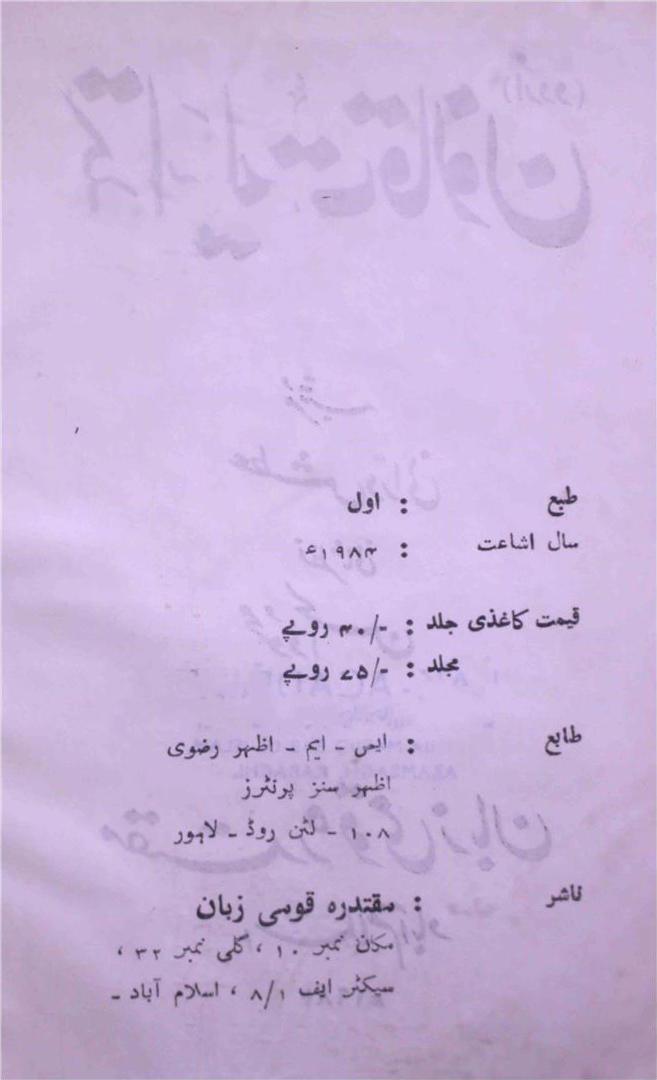 طبع : اول
سال اشاعت : ۱۹۸۴ء
قیمت کاغذی جلد : ۴۰/- روپے
مجلد : ۷۵/- روپے
طابع : ایس - ایم - اظہر رضوی
اظہر سنز پرنٹرز
۱۰۸ - لٹن روڈ - لاہور
ناشر : مقتدرہ قومی زبان
مکان نمبر ۱۰ ، گلی نمبر ۳۲ ،
سیکٹر ایف ۸/۱ ، اسلام آباد -